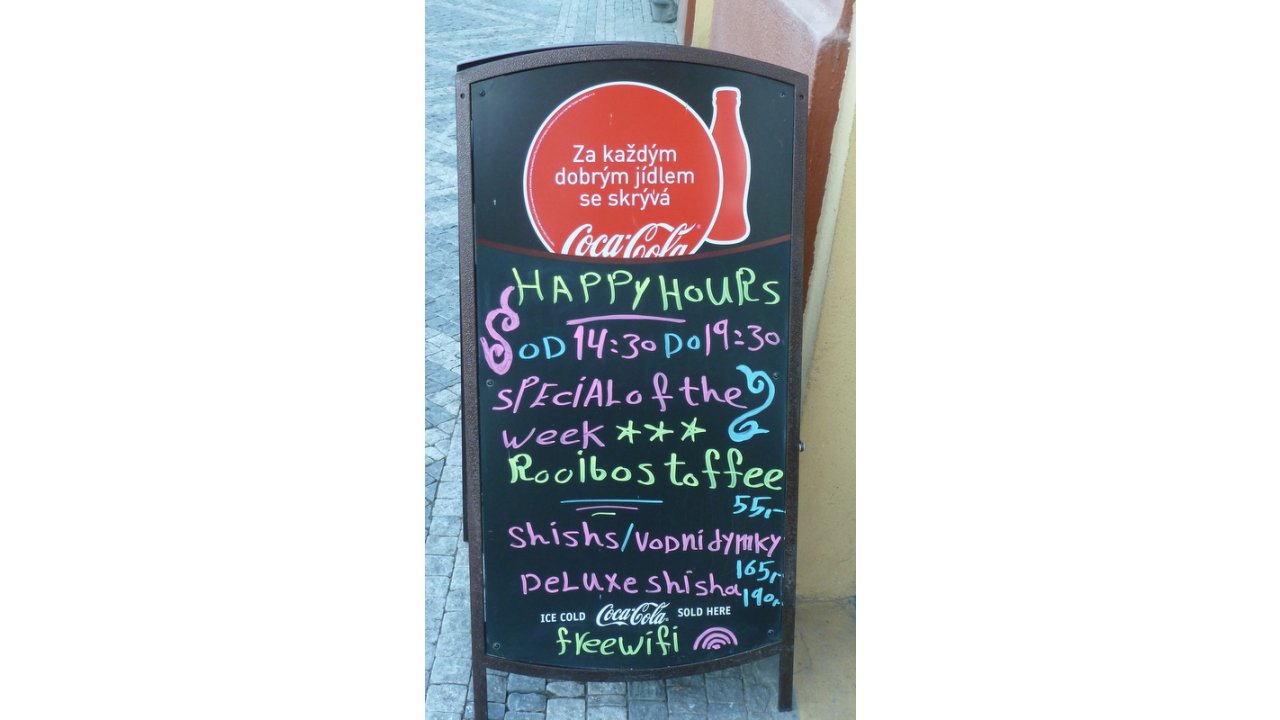 Za každým
dobrým jídlem
se skrývá
Coca-Cola
HAPPY HOURS
OD 14:30 DO 19:30
SPECIAL of the
week ***
Rooibos toffee
55,-
shishs/VODNÍ dýmky
165,-
DeLUXe shisha
190,-
ICE COLD Coca-Cola SOLD HERE
free wifi